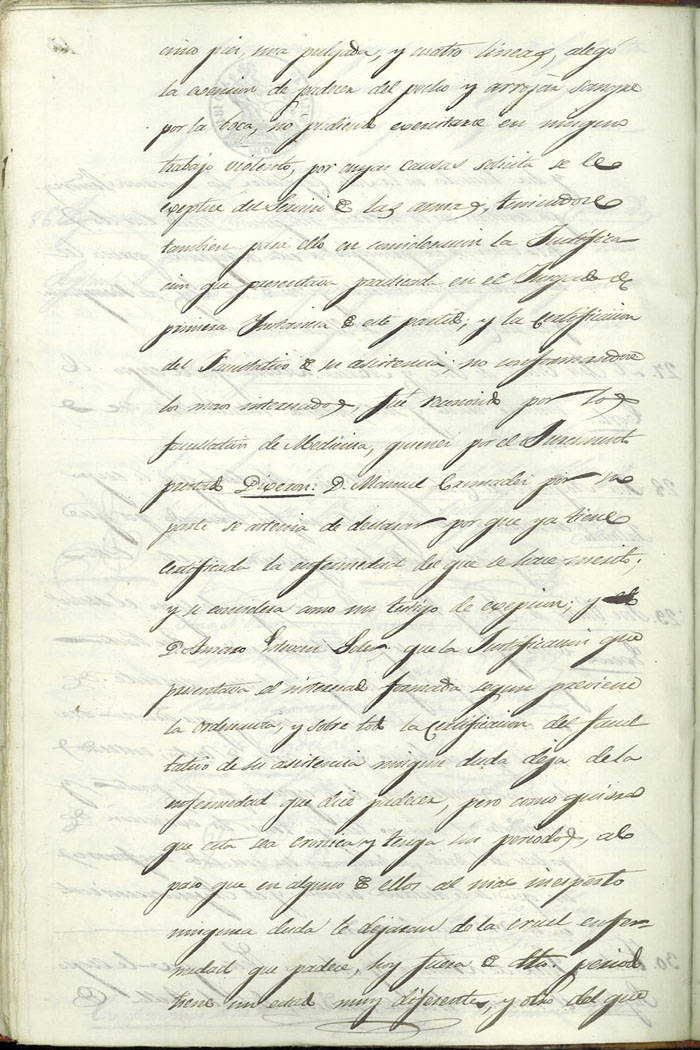 cinco pies, una pulgada, y cuatro lineas, alegó
la exencion de padecer del pecho y arrojar sangre
por la boca, no pudiendo exercitarse en ninguno
trabajo violento, por cuyas causas solicita se le
exeptue del Servicio de las armas, teniendose
tambien para ello en consideracion la Justifica
cion que presentava practicada en el Juzgado de
primera Instancia de este partido; y la Certificacion
del Facultativo de su asistencia; no conformandose
los mozos interesados, fué reconocido por los
facultativos de Medicina, quienes por el Juramento
prestado Dixeron: D. Manuel por su
parte se de declarar por que ya tiene
certificada la enfermedad de que se hace merito;
y se considera como un testigo de exepcion; y
D. Amaro que la Justificacion que
presentava el interesado formada segun previene
la ordenanza, y sobre todo la Certificacion del facul
tativo de su asistencia ningun duda deja de la
enfermedad que dice padecer, pero como quiera
que esta sea cronica y tenga sus periodos, al
paso que en alguno de ellos al mas inesperto
ninguna duda le dejaran de la cruel enfer-
medad que padece, hoy fuera de dho. periodo
tiene un edad muy diferente, y otro del que